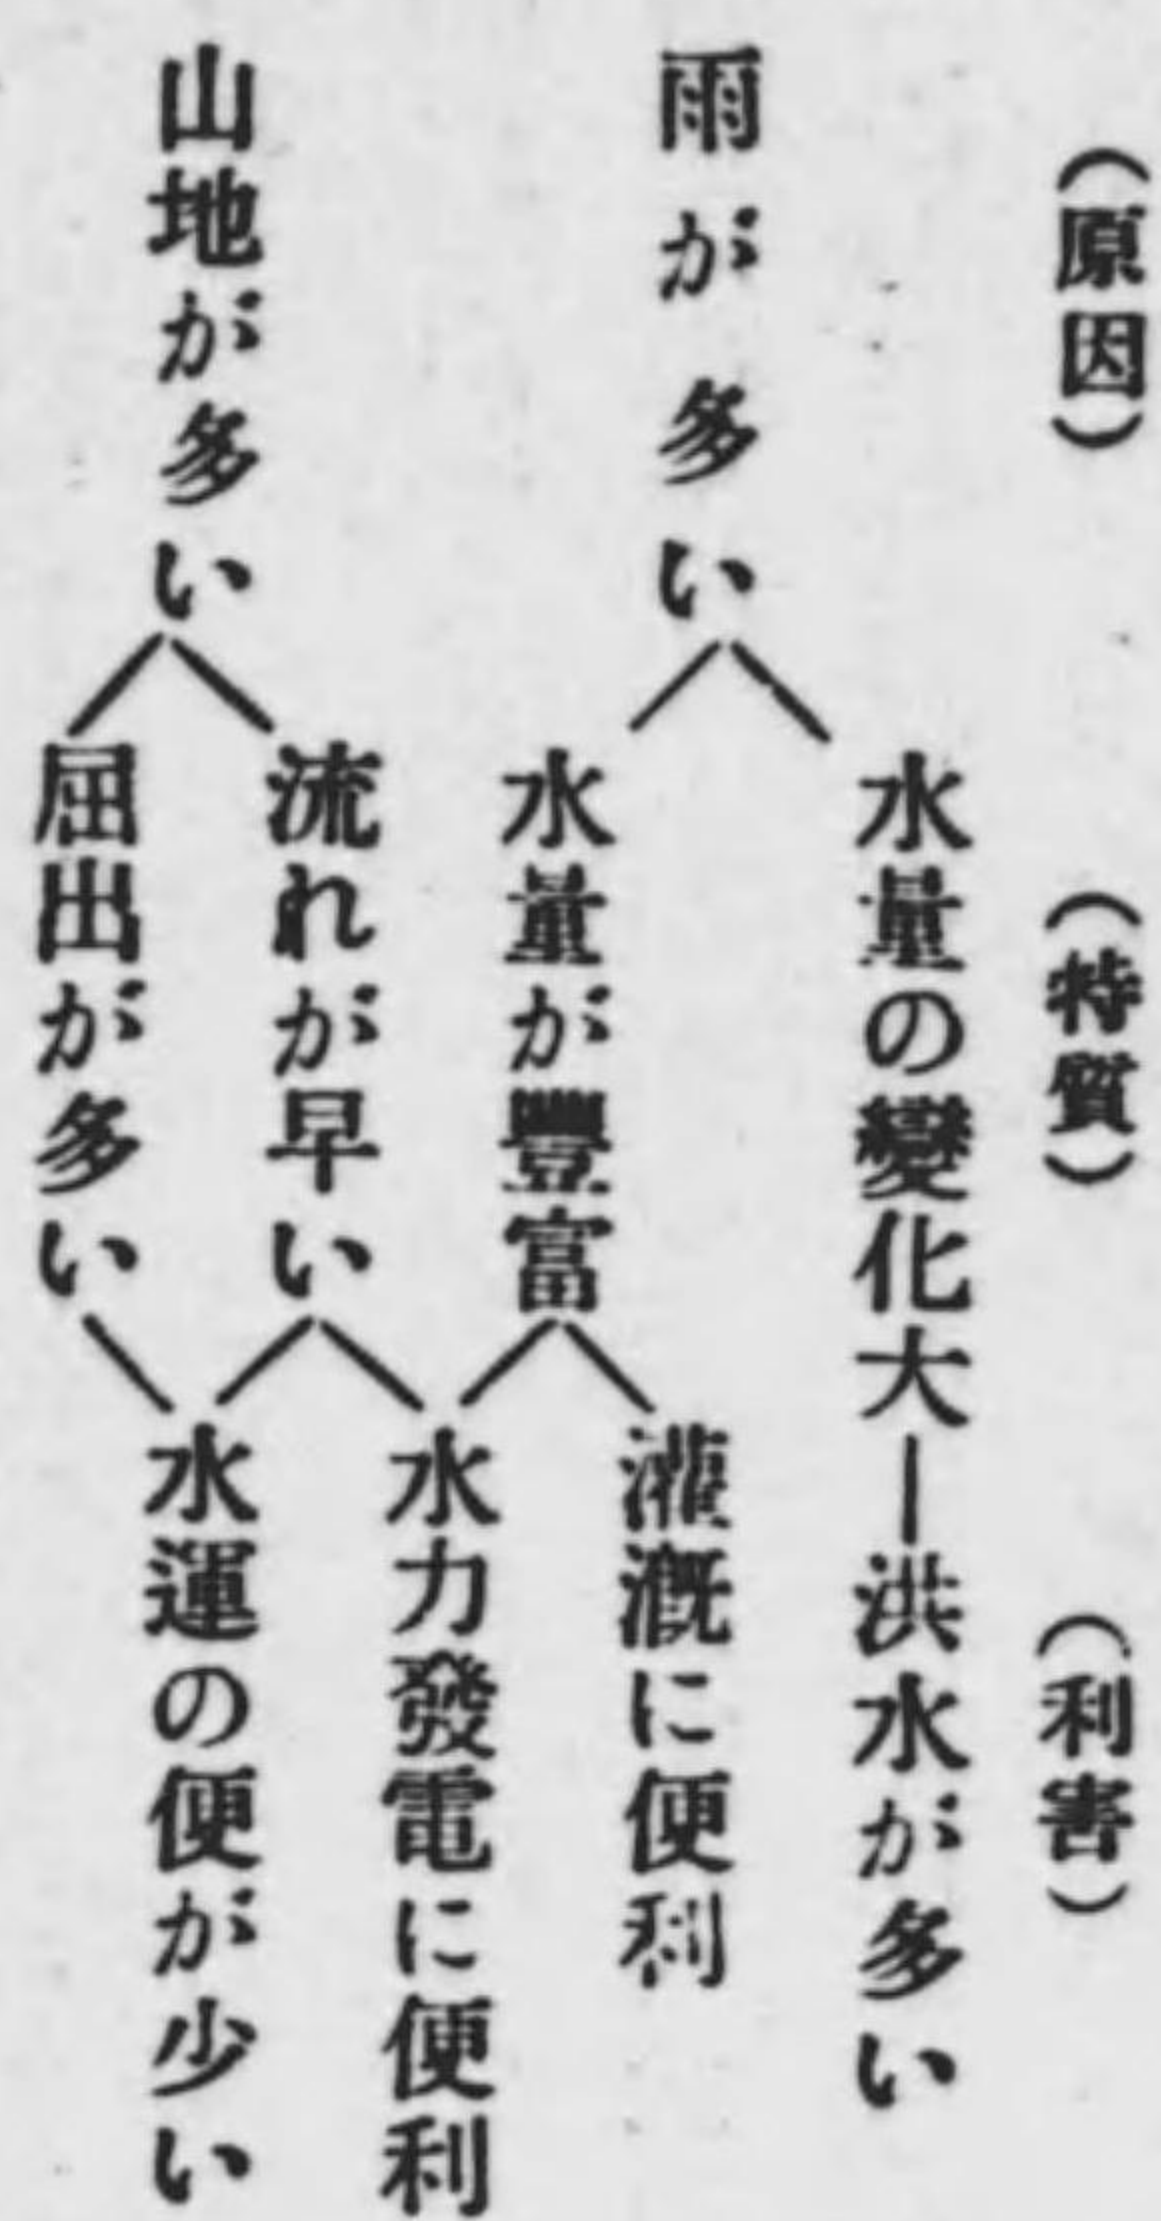 (原因)
(特質)
(利害)
雨が多い
水量の變化大―洪水が多い
水量が豐富
灌漑に便利
水力發電に便利
山地が多い
流れが早い
屈出が多い
水運の便が少い